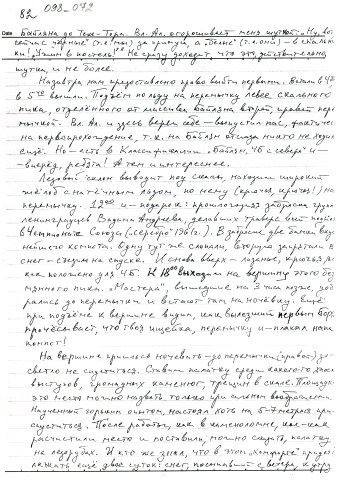 82 093-072
Баблана до Теж-Тара. Вл. Ал. огорошивает меня шуткой: "Ну, вот
сейчас "черные" (т.е. мы) за , а "белые" (т.е. они) - в скалы
Не сразу доходит, что это действительно
шутка и не более.
Назавтра нам предоставлено право выйти первыми.
в 5 вышли. Подъём по льду на перемычку левее скального
пика, отделённого от массива второй, правой пере-
мычкой. Вл. Ал. и здесь верен себе - выпустил нас, фактически
на первопрохождение, т.к. на отсюда никто не ходил
ещё. Но - есть в Классификации 4Б с севера" и -
вперёд, ребята! А там и интереснее.
Ледовый склон выводит под скалы, находим широкий
жёлоб с натёчным льдом, по нему (крючья, крючья!) на
перемычку. и - подарок: прошлогодняя записка группы
ленинградцев Вадима Андреева, делавших траверс
в Чемпионате Союза ("серебро" 1961г.). В записке две банки
компота. Одну тут же слопали, вторую закопали в
снег - съедим на спуске. И снова вверх - лазанье, крючья,
как положено для 4Б. К 18 00 выходим на вершину этого без-
мянного пика. "Мастера", вышедшие на 3 часа позже, до-
брались до перемычки и встают там на ночёвку. Ещё
при подъёме к вершине видим, как вылезший первым Боря
прочёсывает, что твоя ищейка, перемычку и - плакал наш
компот!
На вершине пришлось ночевать - до перемычки (правой) за-
светло не спуститься. Ставим палатку среди какого-то хаоса
выступов, громадных камней, трещин в скале. Площадкой
это место можно назвать только при сильном воображении.
Наученный горьким опытом, настоял хоть на 5-7 метров при-
спуститься. После работы, как в каменоломне, кое-как
расчистили место и поставили, можно сказать, палатку
на ледорубах. И кто же знал, что в этом "комфорте" придётся
лежать ещё двое суток: снег, с вечера, к утру